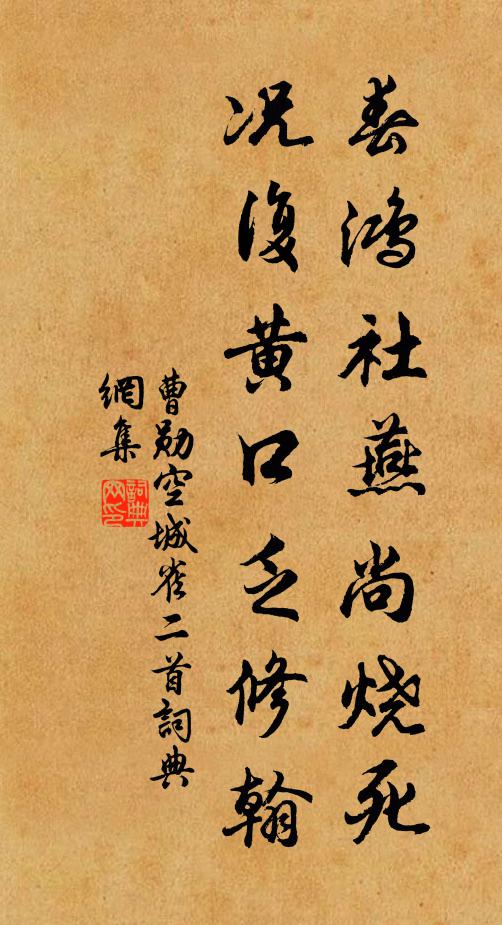 春鸿社燕尚烧死
况复黄口乏修翰
曹勋空城雀二首詞典
網集
詞典
网印